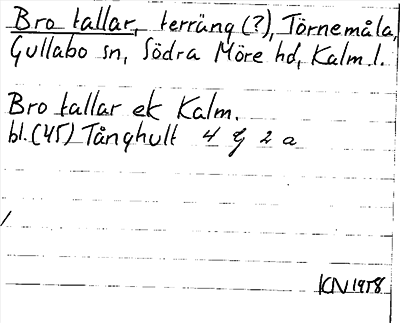 Bro tallar, terräng (?), Törnemåla,
Gullabo sn, Södra Möre hd, Kalm. l.
Bro tallar ek Kalm.
bl. (45) Tånghult 4 G 2 a
KN 1958